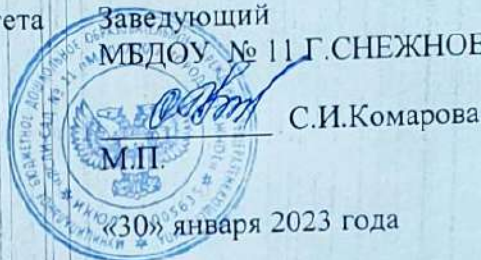 ета Заведующий
МБДОУ № 11 Г.СНЕЖНОЕ
С.И.Комарова
М.П.
«30» января 2023 года